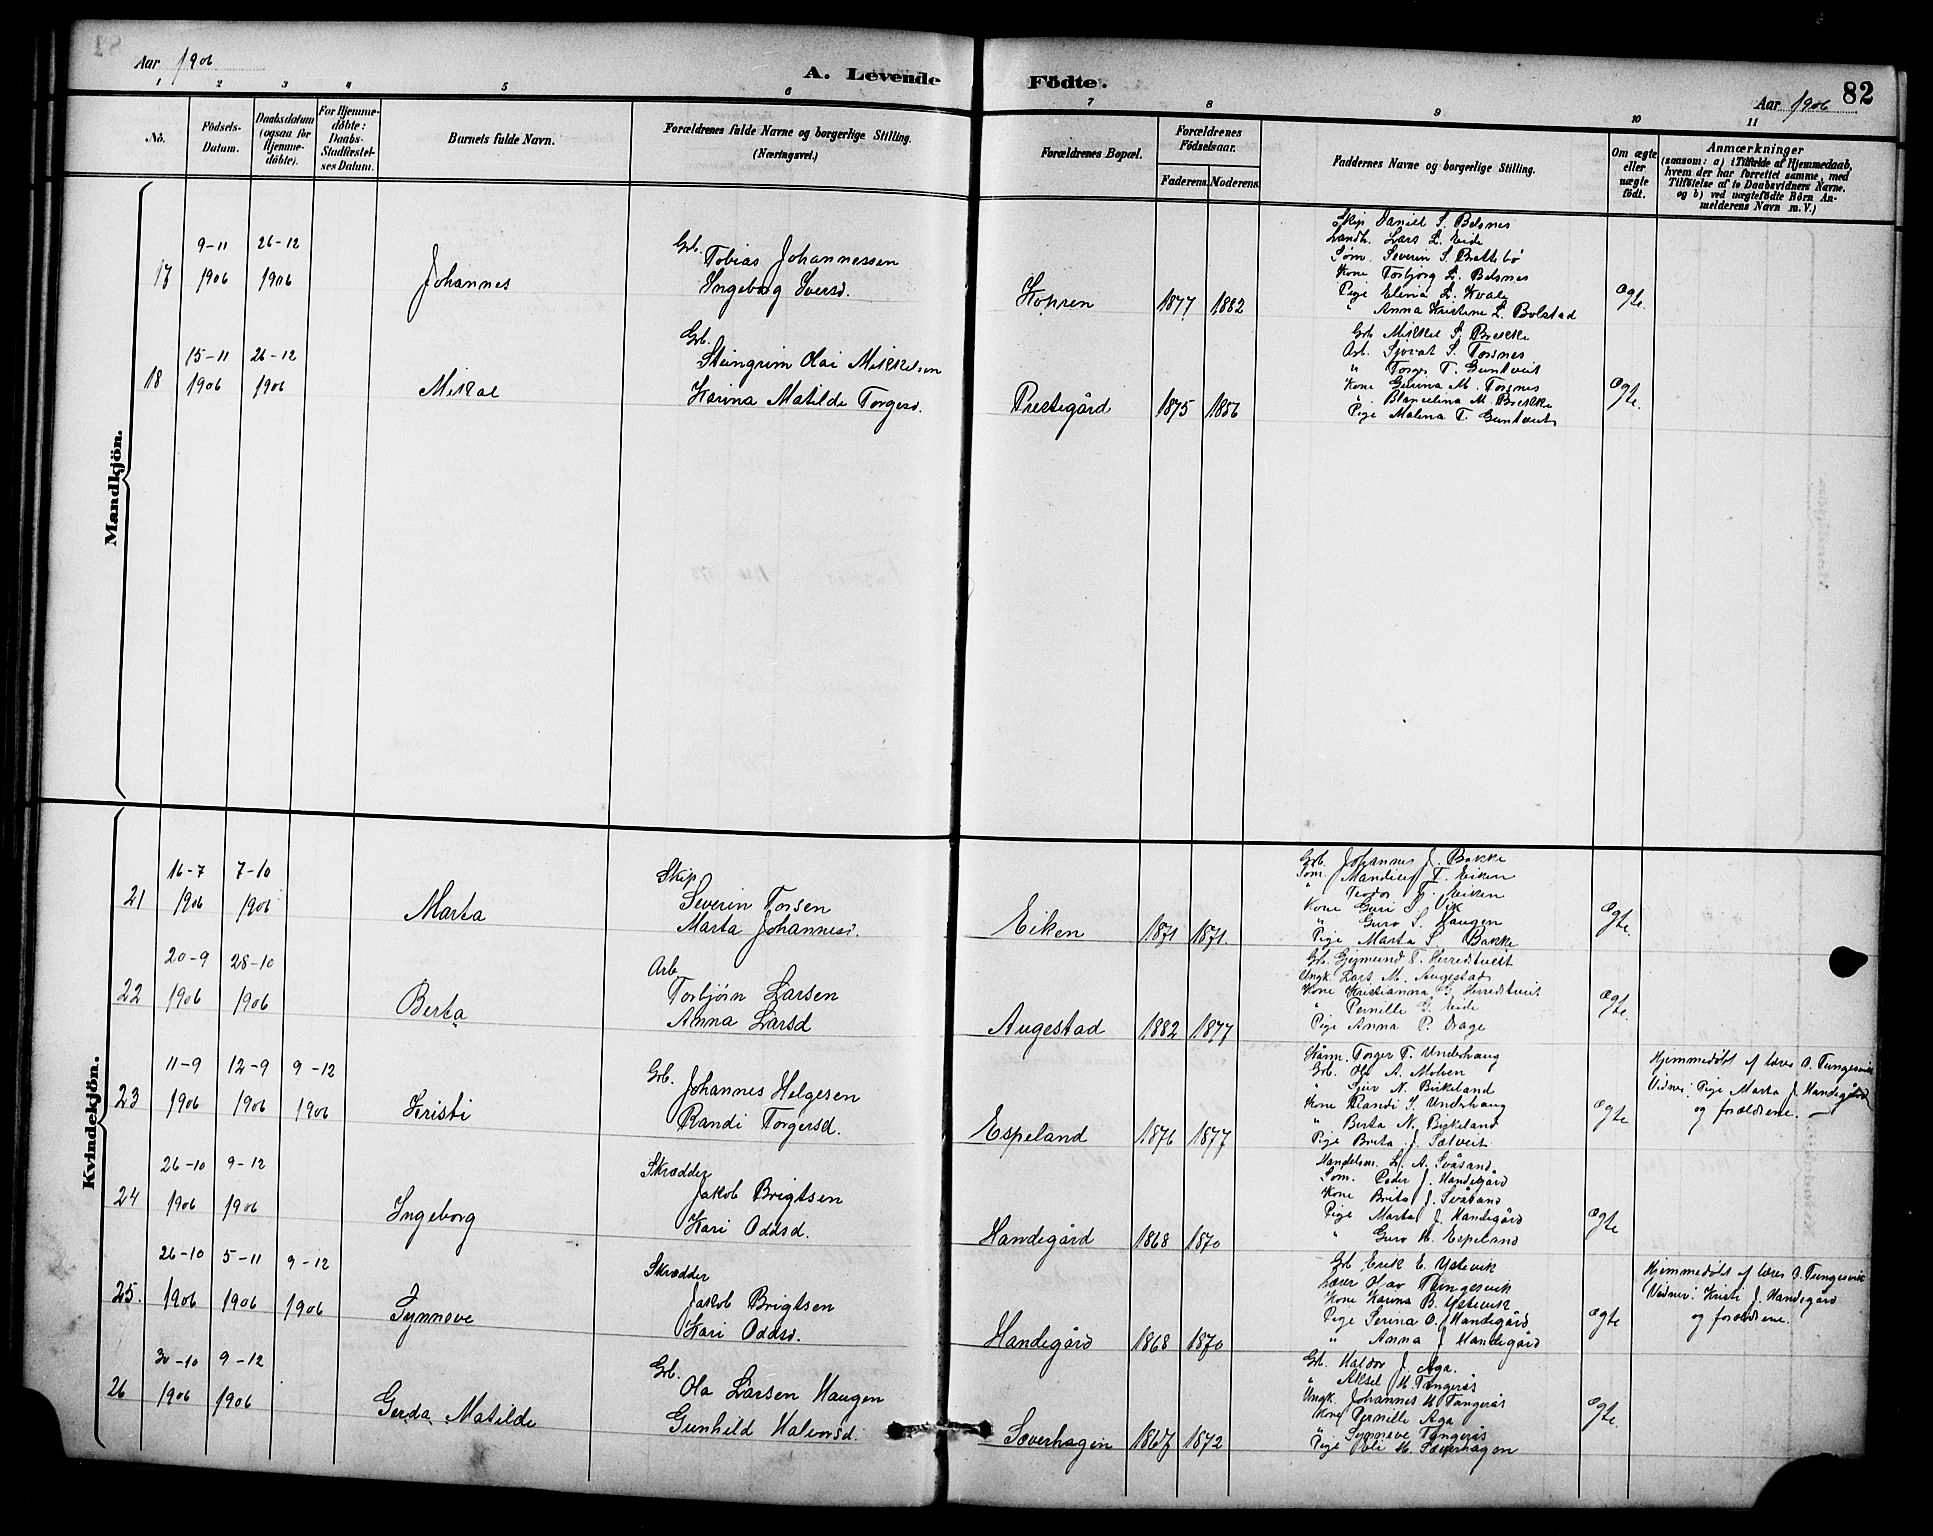 Aar 1906
A. Levende Födte.
Aar 1906
82
1 2 3 4 5 6 7 8 9 10 11
No.
Födsels-Datum.
Daabsdatum (ogsaa for Hjemme-döbte).
For Hjemme-döbte: Daabs-Stadfæstel-ses Datum.
Barnets fulde Navn.
Forældrenes fulde Navne og borgerlige Stilling. (Næringsvei.)
Forældrenes Bopæl.
Forældrenes Födselsaar.
Faderens. Moderens.
Faddernes Navne og borgerlige Stilling.
Om ægte eller uægte födt.
Anmærkninger
(saasom: a) i Tilfælde af Hjemmedaab,
hvem der har forrettet samme, med
Tilföielse af to Daabsvidners Navne,
og b) ved uægtefödte Börn An-
melderens Navn m. V.)
Mandkjön.
17
9-11 1906
26-12 1906
Johannes
Grb.
Tobias Johannessen
Ingeborg Iversd.
Kopren
1877
1882
Skip Daniel S. Belsnes
Landh. Lars L. Eide
Söm. Severin S. Brattebø
Kone Torbjorg L. Belsnes
Pige Elena L. Kvale
" Anna Kristine L. Bolstad
Ægte.
18
15-11 1906
26-12 1906
Mikal
Grb.
Steingrim Olai Mikkelsen
Karina Matilde Torgersd.
Prestegård
1875
1886
Grb Mikkel S. Brekke
Arb. Sjovat S. Torsnes
" Torger T. Guntveit
Kone Gurina M. Torsnes
" M. Brekke
Pige Malena T. Guntveit
Ægte.
Kvindekjön.
21
16-7 1906
7-10 1906
Marta
Skip
Severin Torsen
Marta Johannesd.
Eiken
1871
1871.
Grb. Johannes J. Bakke
Söm. T. Eiken
" Teodor T. Eiken
Kone Guri S. Vik
" Guro S. Haugen
Pige Marta S. Bakke
Ægte.
22
20-9 1906
28-10 1906
Berta
Arb
Torbjörn Larsen
Anna Larsd
Augestad
1882
1877
Grb. Gjermund T. Herredtveit
Ungk. Lars M. Augestad
Kone Kristianna G. Herredtveit
" Pernille G. Eide
Pige Anna P. Drage
Ægte.
23
11-9 1906
12-9 1906
9-12 1906
Kristi
Grb.
Johannes Helgesen
Randi Torgersd.
Espeland
1876
1877
Kårm. Torger T. Underhaug
Grb. Ole A. Molven
" Sjur N. Birkeland
Kone Randi S. Underhaug
" Berta N. Birkeland
Pige Brita J. Sætveit
Ægte
Hjemmedøbt af lærer O. Tungesvik
Vidner: Pige Marta J. Handegård
og forældrene.
24
26-10 1906
9-12 1906
Ingeborg
Skrædder
Jakob Brigtsen
Kari Oddsd.
Handegård
1868
1870
Handelsm. L. A. Svåsand
Söm. Peder J. Handegård
Kone Brita J. Svåsand
Pige Marta J. Handegård
" Guro H. Espeland
Ægte
25.
26-10 1906
5-11 1906
9-12 1906
Synneve
Skrædder
Jakob Brigtsen
Kari Oddsd.
Handegård
1868
1870
Grb Erik E. Ystevik
Lærer Olav Tungesvik
Kone Karina B. Ystevik
Pige Serina O. Handegård
" Anna J Handegård
Ægte
Hjemmedøbt af lærer O. Tungesvik
Vidner: Kristi J. Handegård
og forældrene.
26
30-10 1906
9-12 1906
Gerda Matilde
Grb.
Ola Larsen Haugen
Gunhild Halvorsd.
Sæverhagen
1867
1872
Grb. Haldor J. Aga.
" Aksel H. Tangerås
Ungk. Johannes H Tangerås
Kone Pernille Aga
" Synneve Tangerås
Pige H. Sæverhagen
Ægte.